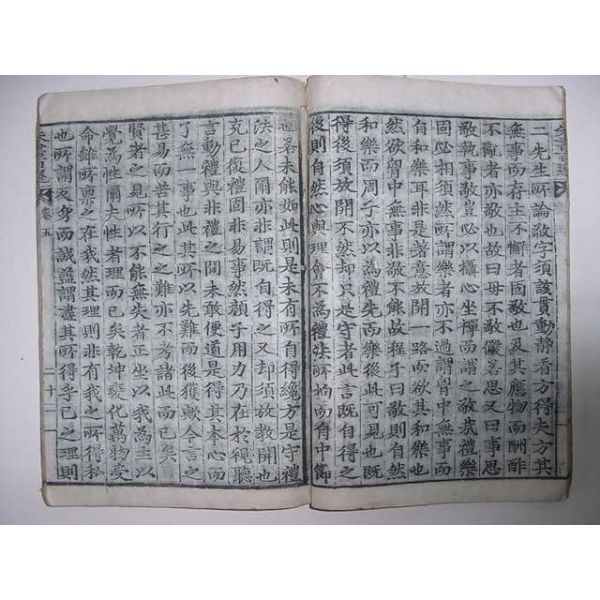 二先生所論敬字須該貫動靜看方得夫方其
無事而存主不懈者固敬也及其應物而酬酢
不亂者亦敬也故曰毋不敬儼若思又曰事思
敬執事敬豈必以攝心坐禪而謂之敬哉禮樂
固必相須然所謂樂者亦不過謂胷中無事而
自和樂耳非是著意放開一路而欲其和樂也
然欲胷中無事非敬不能故程子曰敬則自然
和樂而周子亦以為禮先而樂後此可見也
得後須放開不然却只是守者此言既自得之
後則自然心與理會不為禮法所拘而自中節
也若未能如此則是未有所自得纔方是守禮
法之人爾亦非謂既自得之又却須放教開也
克已復禮固非易事然顏子用力乃在於視聽
言動禮與非禮之間未敢便道是得其本心而
了無一事也此其所以先難而後獲歟今言之
甚易而苦其行之之難亦不考諸此而已矣
賢者之見所以不能無失者正坐以我為主以
覺為性爾夫性者理而已矣乾坤變化萬物受
命雖所稟之在我然其理則非有我之所得私
也所謂反身而誠蓋謂盡其所得乎已之理則
卷五
二十一